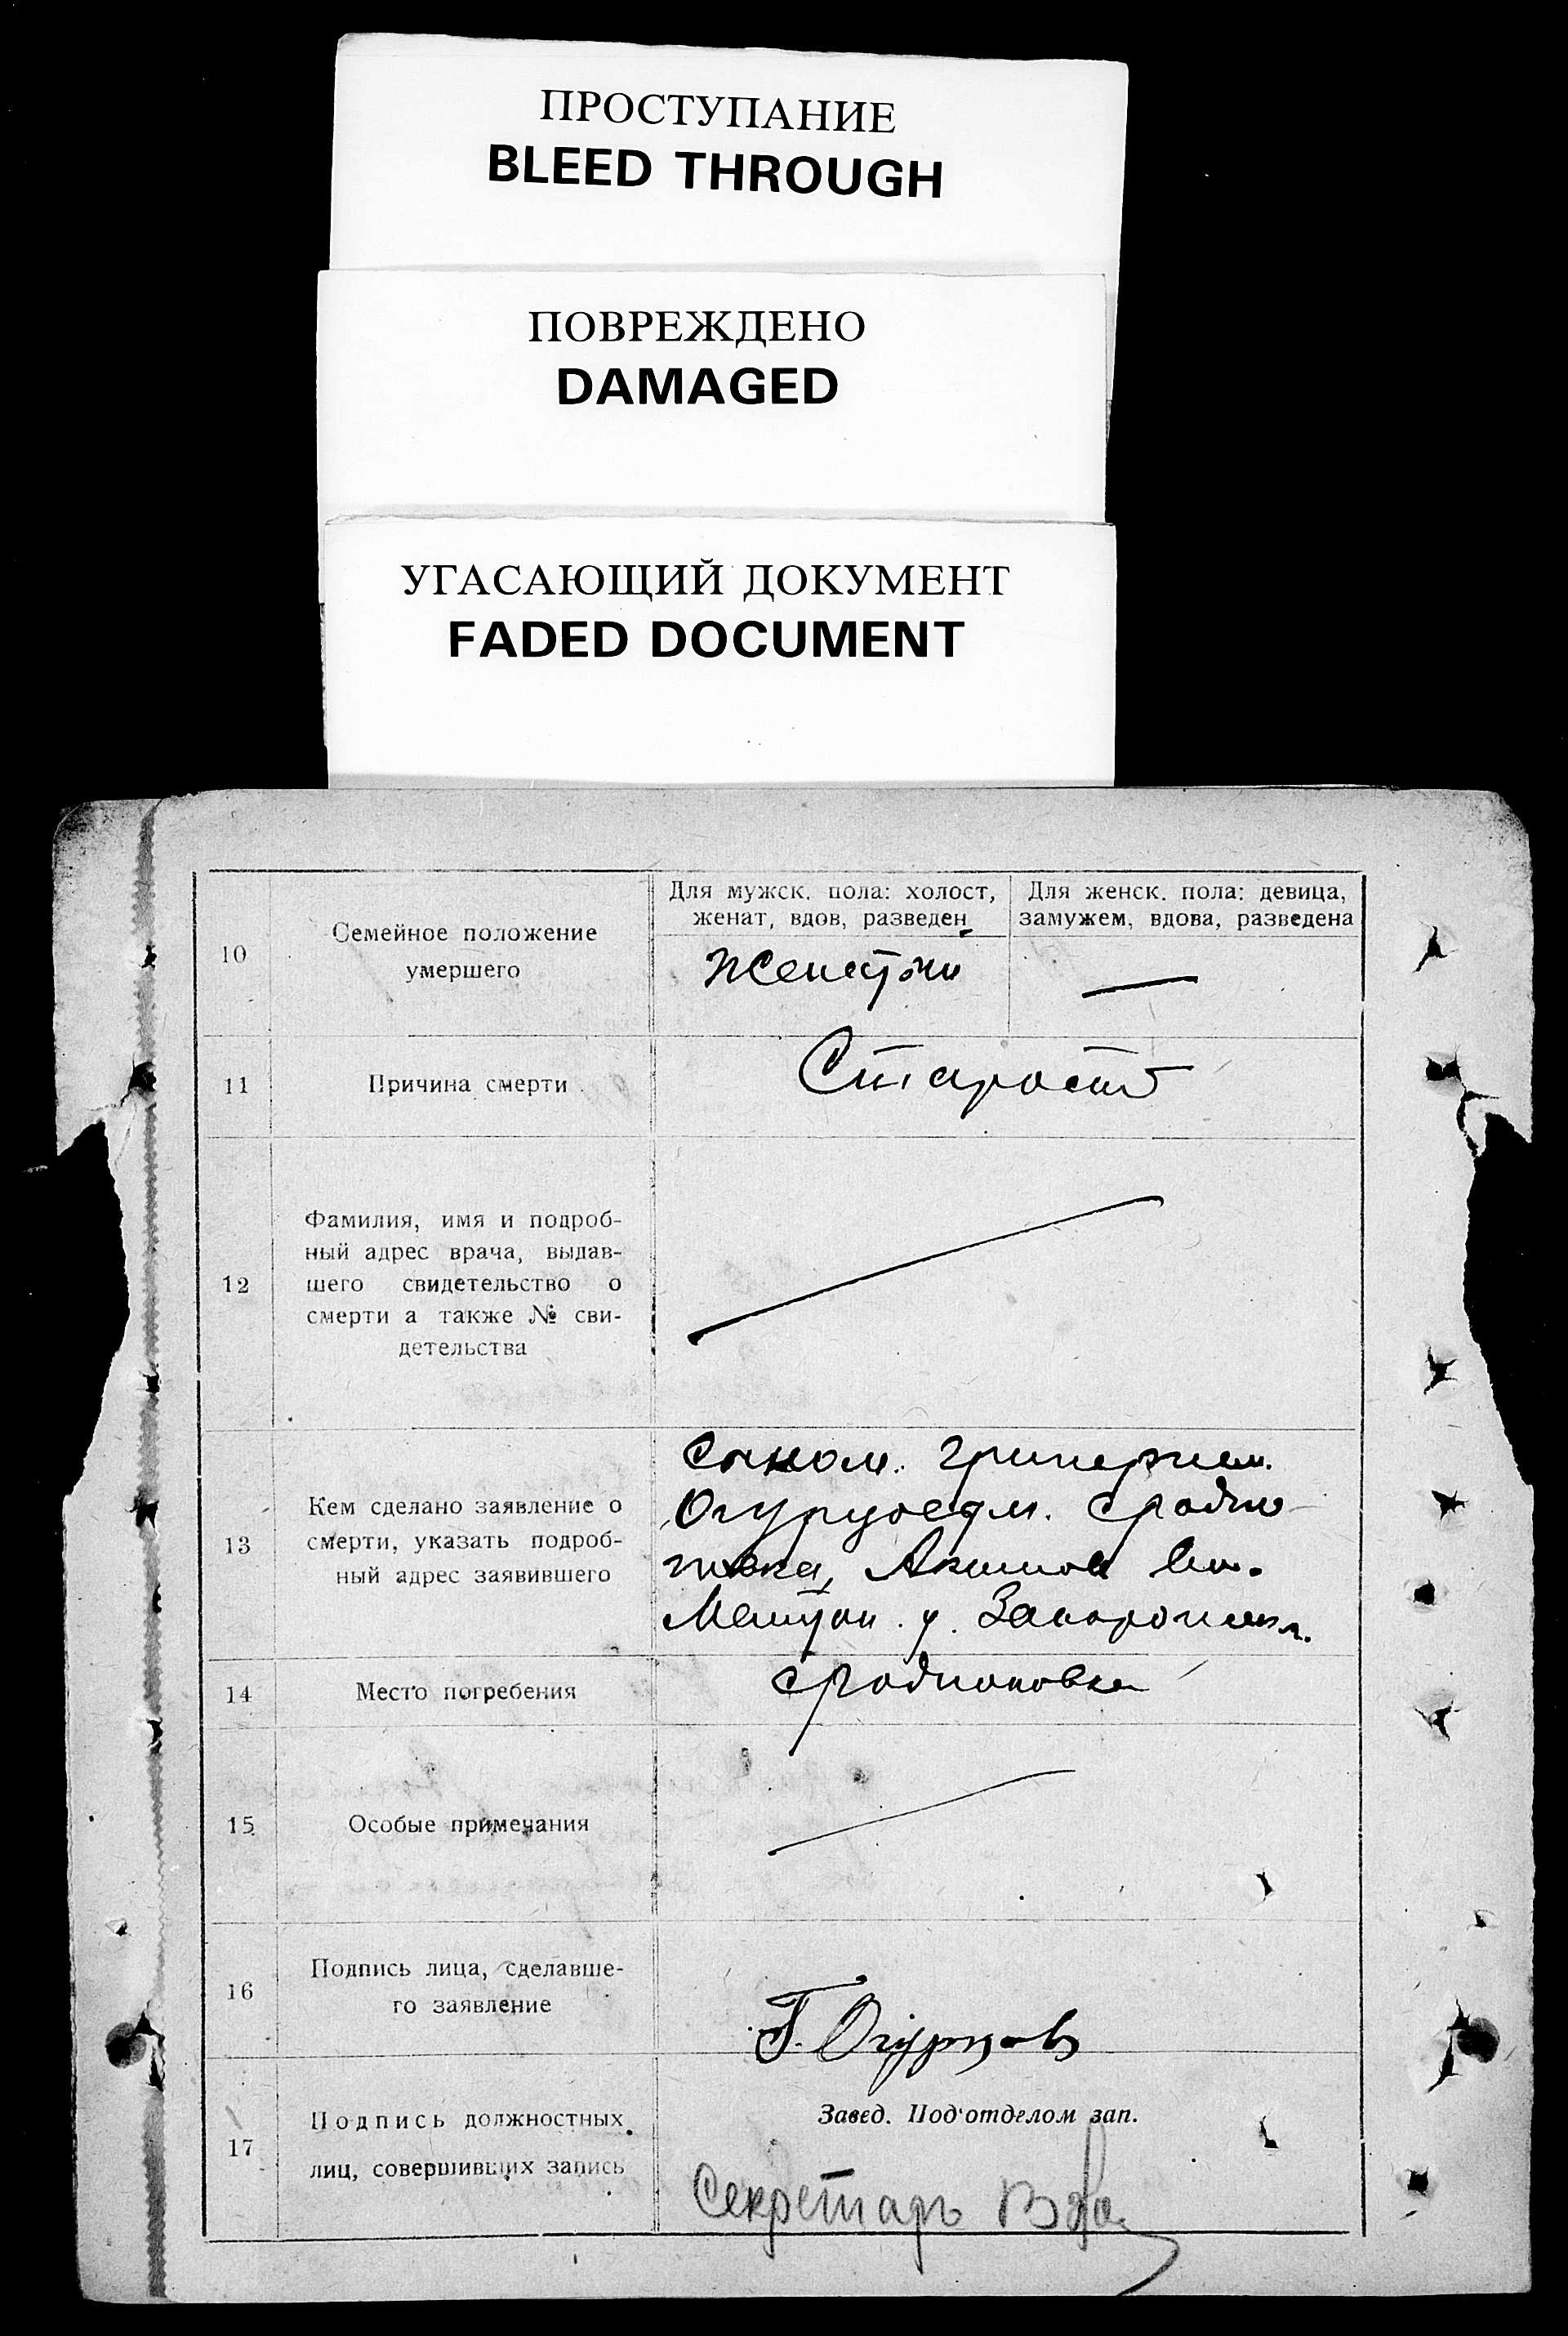 ПРОСТУПАНИЕ
BLEED THROUGH
ПОВРЕЖДЕНО
DAMAGED
УГАСАЮЩИЙ ДОКУМЕНТ
FADED DOCUMENT
10
Семейное положение
умершего
Для мужск. пола: холост,
женат, вдов, разведен
Для женск. пола: девица,
замужем, вдова, разведена
Женатый
—
11
Причина смерти
Старость
12
Фамилия, имя и подроб-
ный адрес врача, выдав-
шего свидетельство о
смерти а также № сви-
детельства
13
Кем сделано заявление о
смерти, указать подроб-
ный адрес заявившего
Сыном
Акимов
Запорожск.
14
Место погребения
с Родионовка
15
Особые примечания
16
Подпись лица, сделавше-
го заявление
Г. Огурцов
17
Подпись должностных
лиц, совершивших запись
Завед. Под'отделом зап.
Секретарь